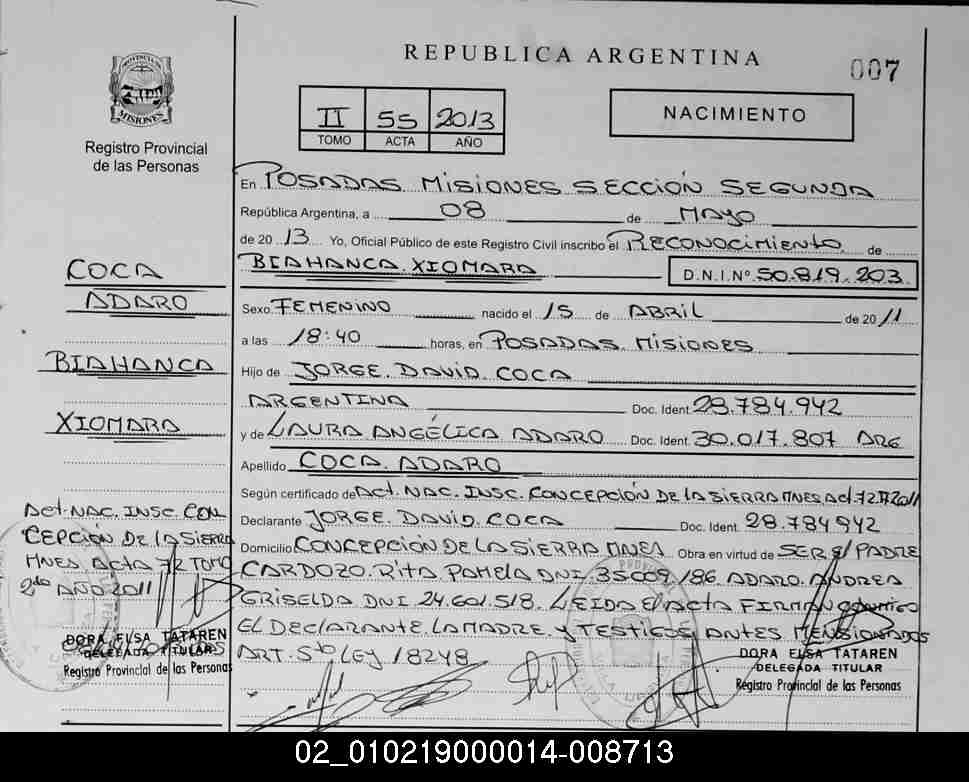 REPUBLICA ARGENTINA
007
PROVINCIA DE
MISIONES
Registro Provincial
de las Personas
II 55 2013
TOMO ACTA AÑO
NACIMIENTO
En POSADAS MISIONES SECCIÓN SEGUNDA
República Argentina, a 08 de MAYO
de 2013 Yo, Oficial Público de este Registro Civil inscribo el RECONOCIMIENTO de
BIAHANCA XIOMARA D.N.I.Nº 50.819.203
Sexo FEMENINO nacido el 15 de ABRIL de 2011
a las 18:40 horas, en POSADAS MISIONES
Hijo de JORGE DAVID COCA
ARGENTINA Doc. Ident. 28.784.942
y de LAURA ANGÉLICA ADARO Doc. Ident. 30.017.807 ARG
Apellido COCA ADARO
Según certificado de Act. NAC. INSC. CONCEPCIÓN DE LA SIERRA MNES Act 72 2011
Declarante JORGE DAVID COCA Doc. Ident. 28.784942
Domicilio CONCEPCIÓN DE LA SIERRA MNES Obra en virtud de SER el PADRE
CARDOZO RITA PAMELA DNI 35009186 ADARO ANDREA
GRISELDA DNI 24.601.518. LEIDA El ACTA FIRMAN
EL DECLARANTE LA MADRE y TESTIGOS ANTES MENSIONADOS
ART. 5to LEY 18248
DORA ELSA TATAREN
DELEGADA TITULAR
Registro Provincial de las Personas
COCA
ADARO
BIAHANCA
XIOMARA
Act. NAC. INSC. CON
CEPCIÓN DE LA SIERRA
MNES ACTA 72 TOMO
2do AÑO 2011
DORA ELSA TATAREN
DELEGADA TITULAR
Registro Provincial de las Personas
02_010219000014-008713